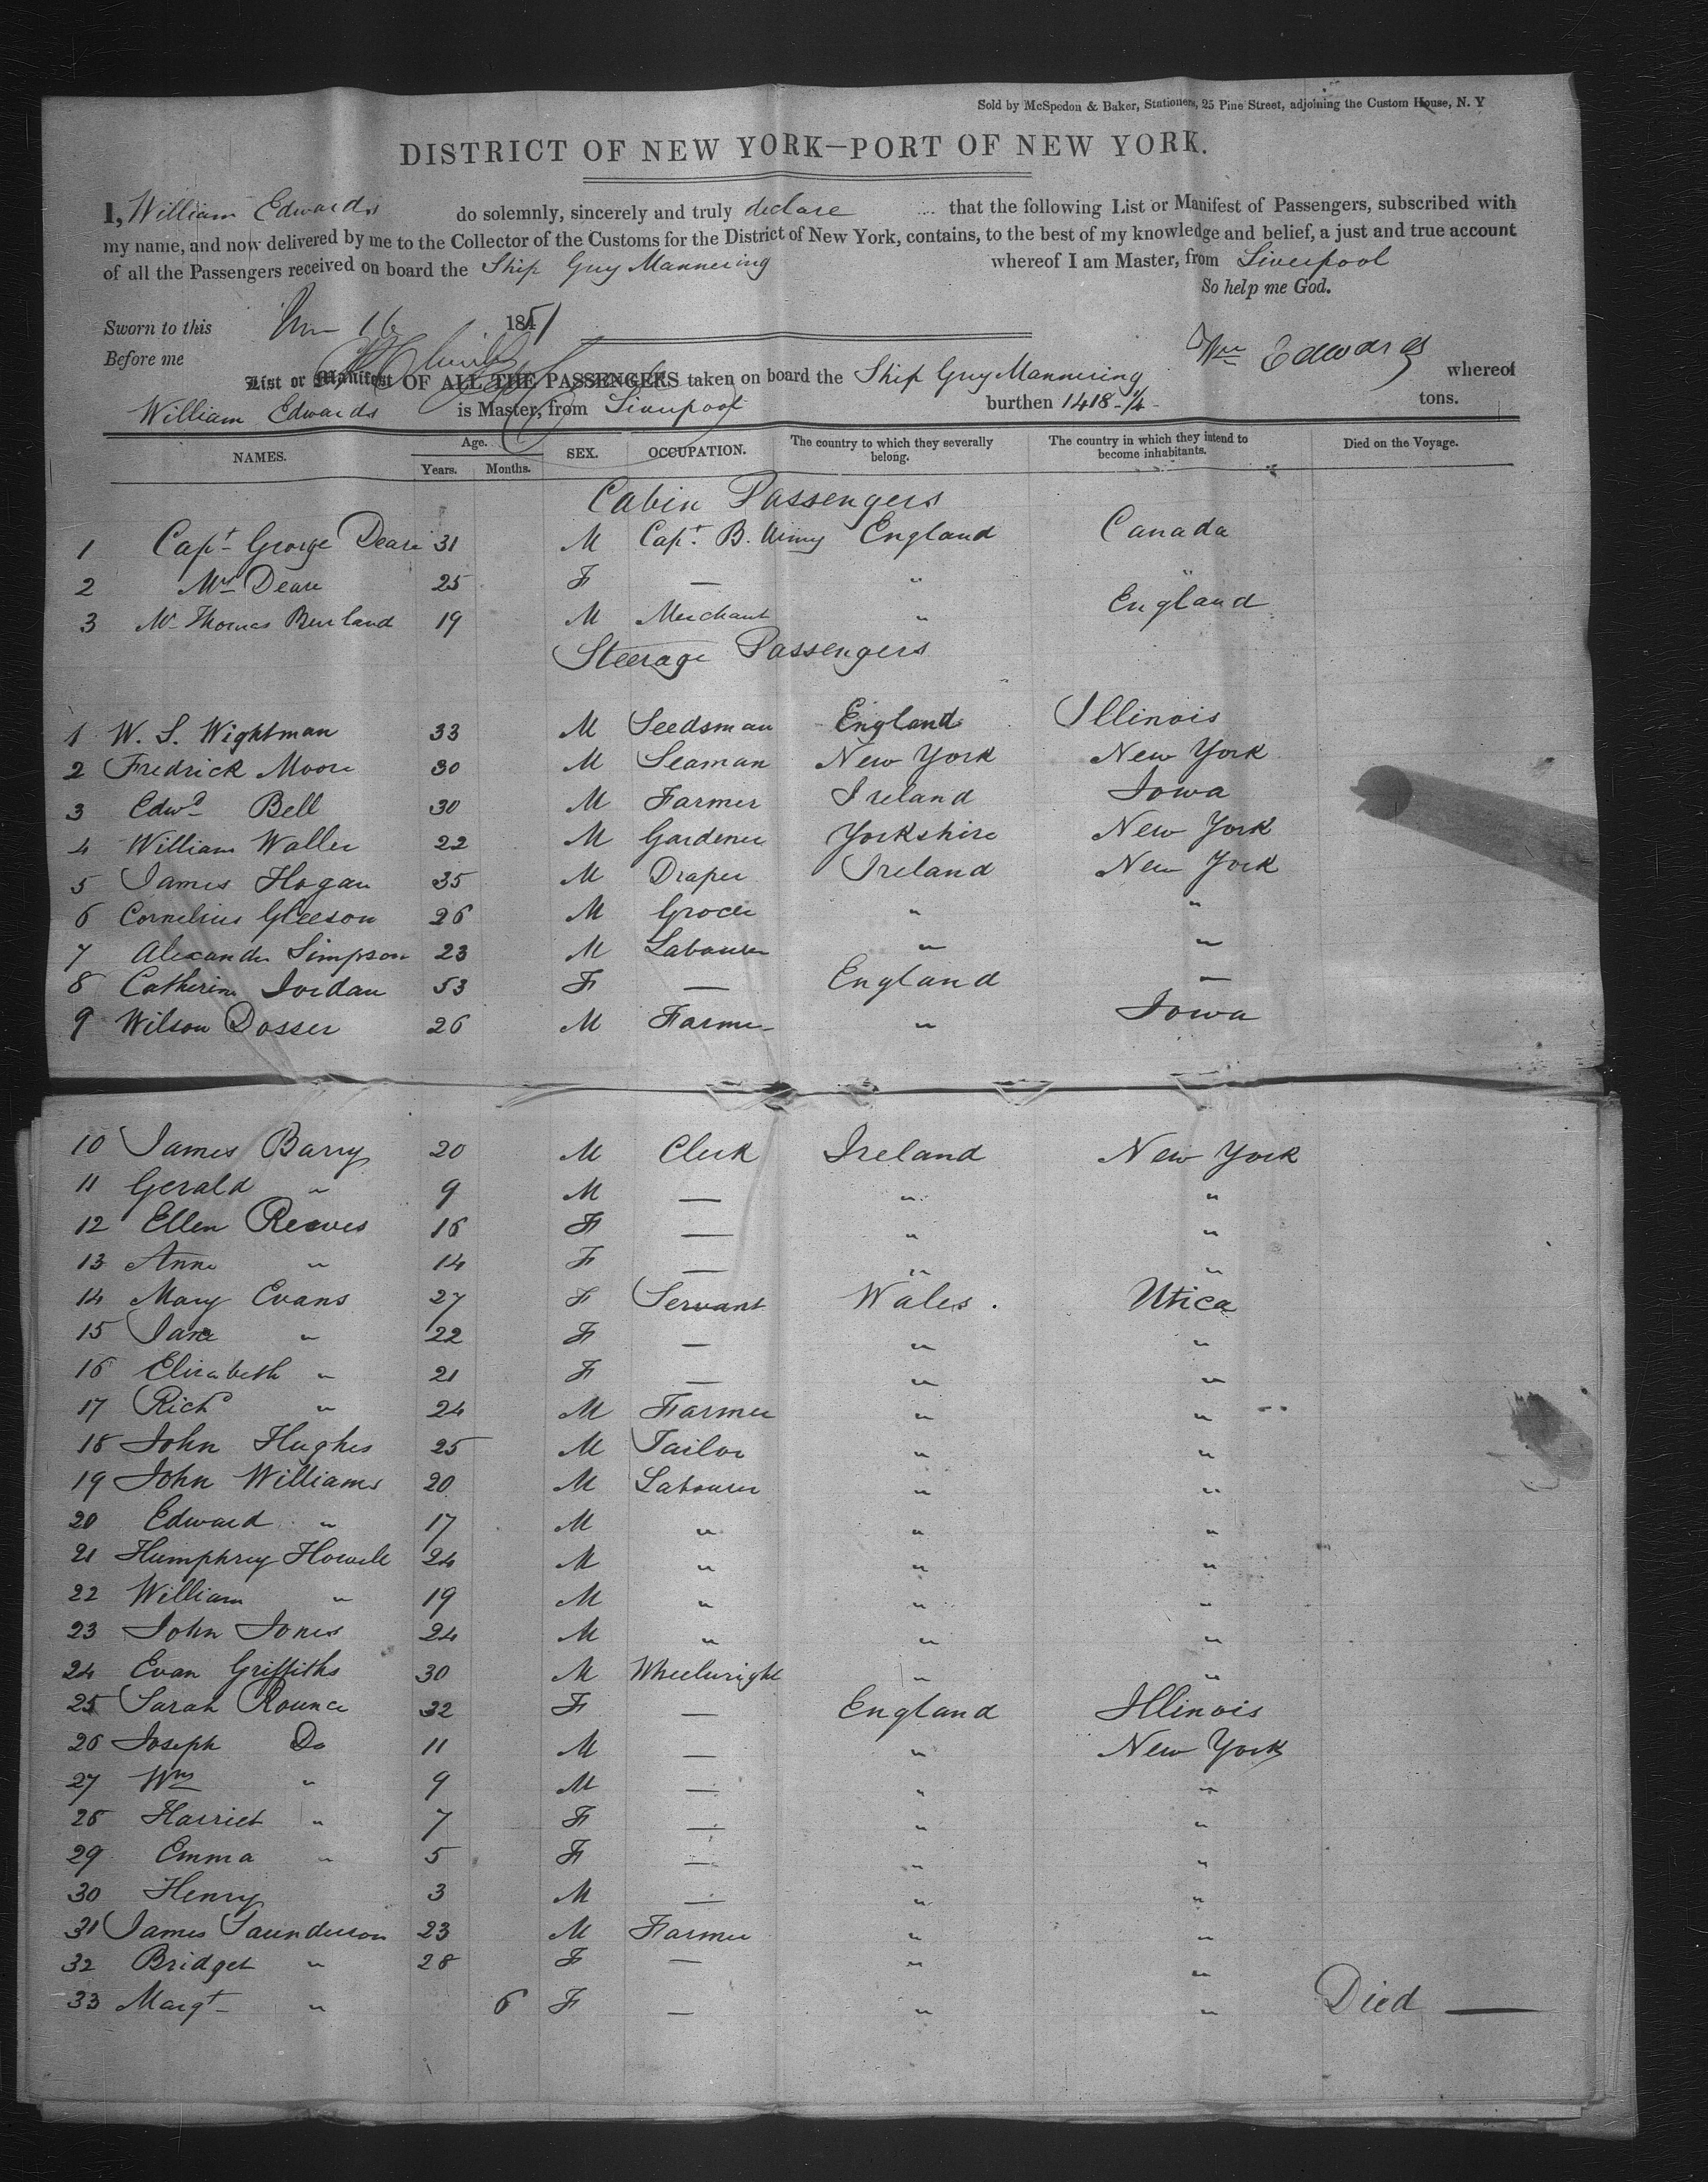 Sold by McSpedon & Baker, Stationers, 25 Pine Street, adjoining the Custom House, N. Y
DISTRICT OF NEW YORK—PORT OF NEW YORK.
I, William Edwards do solemnly, sincerely and truly declare that the following List or Manifest of Passengers, subscribed with
my name, and now delivered by me to the Collector of the Customs for the District of New York, contains, to the best of my knowledge and belief, a just and true account
of all the Passengers received on board the Ship Guy Mannering whereof I am Master, from Liverpool
So help me God.
Sworn to this 16 1851
Before me
Wm Edwards
List or Manifest OF ALL THE PASSENGERS taken on board the Ship Guy Mannering whereof
William Edwards is Master, from Liverpool burthen 1418-1/4 tons.
NAMES. Age. Years. Months. SEX. OCCUPATION. The country to which they severally belong. The country in which they intend to become inhabitants. Died on the Voyage.
Cabin Passengers
1 Capt George Deare 31 M Capt B. Army England Canada
2 Mrs Deare 25 F — " "
3 Mr Thomas Burland 19 M Merchant " England
Steerage Passengers
1 W. S. Wightman 33 M Seedsman England Illinois
2 Fredrick Moore 30 M Seaman New York New York
3 Edwd Bell 30 M Farmer Ireland Iowa
4 William Waller 22 M Gardener Yorkshire New York
5 James Hogan 35 M Draper Ireland New York
6 Cornelius Gleeson 26 M Grocer " "
7 Alexander Simpson 23 M Labourer " "
8 Catherine Jordan 53 F — England —
9 Wilson Dosser 26 M Farmer " Iowa
10 James Barry 20 M Clerk Ireland New York
11 Gerald " 9 M — " "
12 Ellen Reaves 16 F — " "
13 Anne " 14 F — " "
14 Mary Evans 27 F Servant Wales. Utica
15 Jane " 22 F — " "
16 Elizabeth " 21 F — " "
17 Richd " 24 M Farmer " "
18 John Hughes 25 M Tailor " "
19 John Williams 20 M Labourer " "
20 Edward " 17 M " " "
21 Humphrey Howell 24 M " " "
22 William " 19 M " " "
23 John Jones 24 M " " "
24 Evan Griffiths 30 M Wheelwright " "
25 Sarah Rounce 32 F — England Illinois
26 Joseph Do 11 M — " New York
27 Wm " 9 M — " "
28 Harriet " 7 F — " "
29 Emma " 5 F — " "
30 Henry 3 M — " "
31 James Saunderson 23 M Farmer " "
32 Bridget " 28 F — " "
33 Margt " 6 F — " " Died —